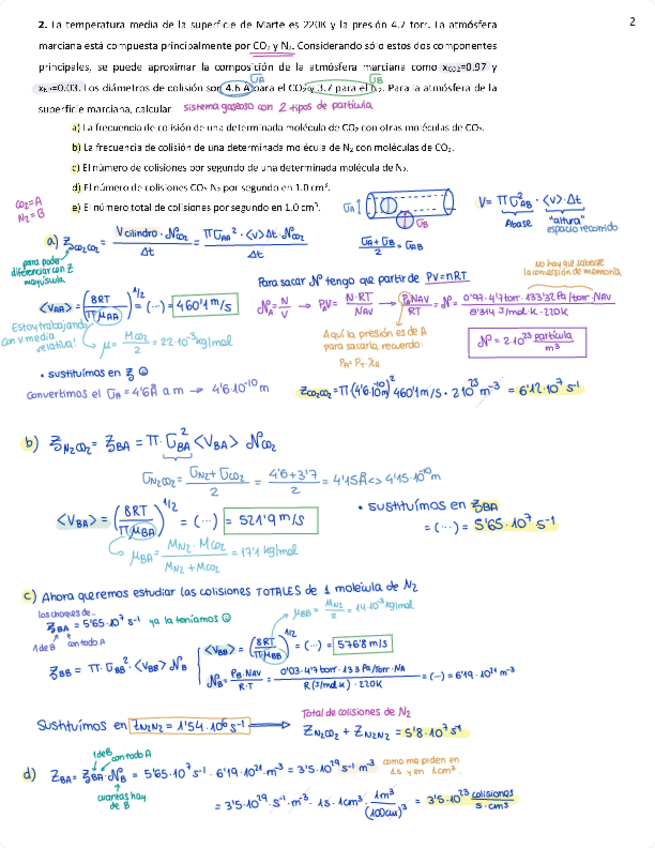 2
2. La temperatura media de la superficie de Marte es 220K y la presión 4.7 torr. La atmósfera
marciana está compuesta principalmente por CO₂ y N₂. Considerando sólo estos dos componentes
principales, se puede aproximar la composición de la atmósfera marciana como xCO2=0.97 y
xN2=0.03. Los diámetros de colisión son 4.6 A para el CO₂ y 3.7 para el N₂. Para la atmósfera de la
superficie marciana, calcular sistema gaseoso con 2 tipos de partícula
a) La frecuencia de colisión de una determinada molécula de CO₂ con otras moléculas de CO₂.
b) La frecuencia de colisión de una determinada molécula de N₂ con moléculas de CO₂.
c) El número de colisiones por segundo de una determinada molécula de N₂.
d) El número de colisiones CO₂ N₂ por segundo en 1.0 cm³.
e) El número total de colisiones por segundo en 1.0 cm³.
CO₂=A
N₂=B
σA
σB
σA+σB / 2 = σAB
V= π σ²AB · <v>·Δt
Abase
"altura"
espacio recorrido
a) zCO₂CO₂ = Vcilindro · NCO₂ / Δt = π σAA² · <v> Δt · NCO₂ / Δt
para poder
diferenciar con Z
mayúscula
<VAA> = (8RT / πμAA)^1/2 = (...) = 460'1 m/s
Estoy trabajando
con v media
relativa!
μ = MCO₂ / 2 = 22·10⁻³ kg/mol
Para sacar N tengo que partir de PV=nRT
no hay que saberse
la conversión de memoria
NA = N/V → PAV = N·RT / NAV → PANAV / RT = N = 0'97·4'7torr·133'32 Pa/torr·NAV / 8'314 J/mol·K·220K
Aquí la presión es de A
para sacarla, recuerdo:
PA = PT·XA
N = 2·10²³ partícula / m³
• sustituimos en z ☺
Convertimos el σA = 4'6Å a m → 4'6·10⁻¹⁰ m
zCO₂CO₂ = π (4'6·10⁻¹⁰m)² 460'1 m/s · 2·10²³ m⁻³ = 6'12·10⁷ s⁻¹
b) zN₂CO₂ = zBA = π·σ²BA <VBA> NCO₂
σN₂CO₂ = σN₂+σCO₂ / 2 = 4'6+3'7 / 2 = 4'15Å <> 4'15·10⁻¹⁰ m
<VBA> = (8RT / πμBA)^1/2 = (...) = 521'9 m/s
μBA = MN₂·MCO₂ / MN₂+MCO₂ = 17'1 kg/mol
• sustituimos en zBA
= (...) = 5'65·10⁷ s⁻¹
c) Ahora queremos estudiar las colisiones TOTALES de 1 molécula de N₂
los choques de...
zBA = 5'65·10⁷ s⁻¹ ya la teníamos ☺
1 de B con todo A
μBB = MN₂ / 2 = 14·10⁻³ kg/mol
zBB = π·σBB²·<VBB> NB
<VBB> = (8RT / πμBB)^1/2 = (...) = 576'8 m/s
NB = PB·NAV / R·T = 0'03·4'7torr·133 Pa/Torr·NA / R(J/mol·K)·220K = (...) = 6'19·10²¹ m⁻³
Sustituimos en zN₂N₂ = 1'54·10⁶ s⁻¹
Total de colisiones de N₂
ZN₂CO₂ + ZN₂N₂ = 5'8·10⁷ s⁻¹
1 de B
con todo A
d) ZBA = zBA·NB = 5'65·10⁷ s⁻¹ · 6'19·10²¹ m⁻³ = 3'5·10²⁹ s⁻¹ m⁻³
cuantas hay
de B
como me piden en
1s y en 1cm³.
= 3'5·10²⁹·s⁻¹·m⁻³ · 1s·1cm³ · 1m³ / (100cm)³ = 3'5·10²³ colisiones / s·cm³